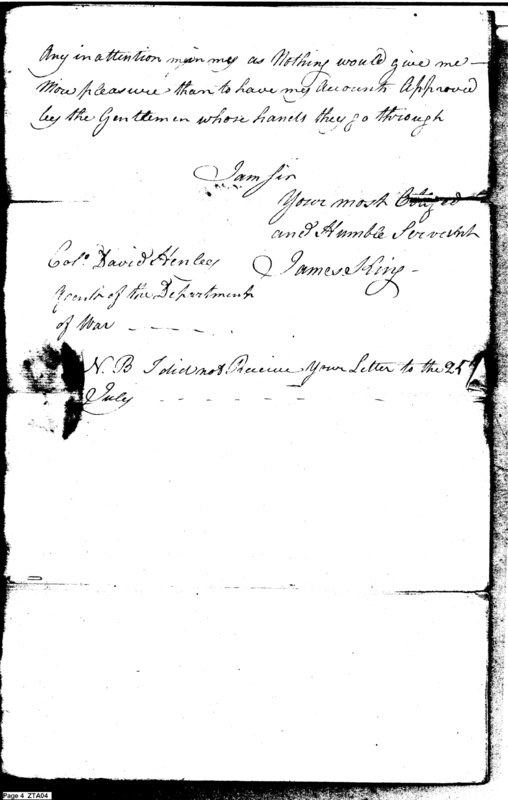 Any inattention in my as Nothing would give me
More pleasure than to have my Accounts Approved
by the Gentlemen whose hands they go through
I am Sir
Your most Obliged
and Humble Servant
James King
Colo. David Henley
Agent of the Department
of War
N. B I did not Receive Your Letter to the 25th
July
Page 4 ZTA04